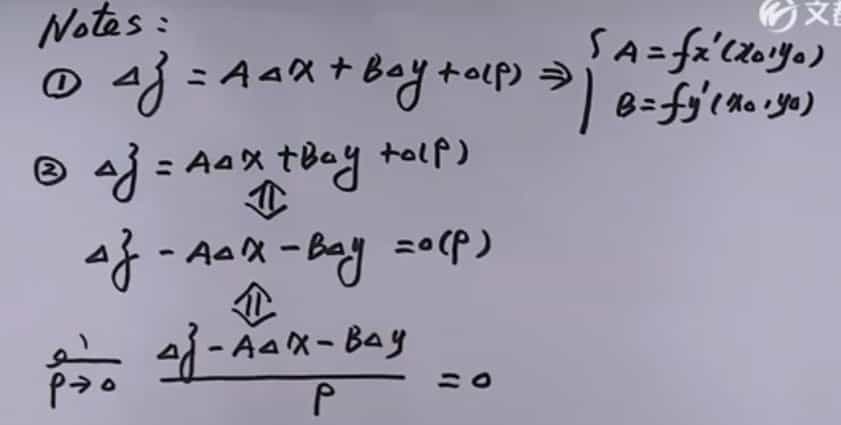 文都
Notes:
① Δz = AΔx + BΔy + o(ρ) ⇒ { A = fx'(x₀,y₀)
B = fy'(x₀,y₀)
② Δz = AΔx + BΔy + o(ρ)
⇕
Δz - AΔx - BΔy = o(ρ)
⇕
ρ→0 (Δz - AΔx - BΔy)/ρ = 0